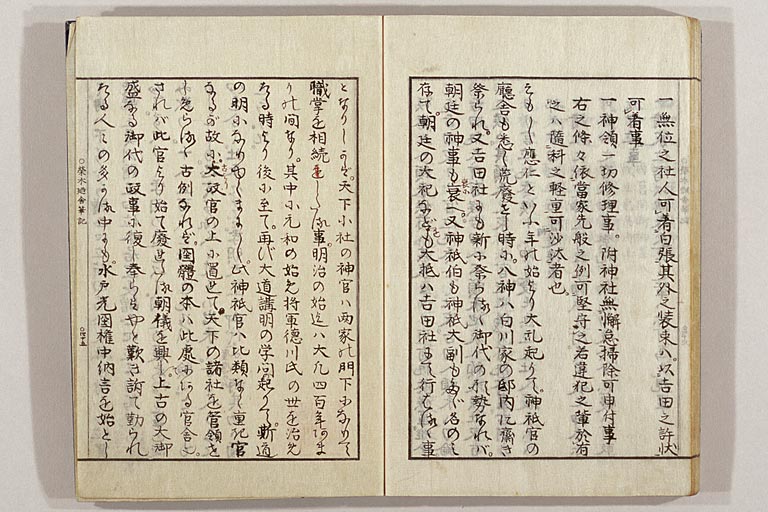 一無位之社人可着白張其外之装束ハ以吉田之許状
可着事
一神領一切修理事。附神社無懈怠掃除可申付事
右之條々依當家先般之例可堅守之若違犯之輩於有
之ハ隨科之軽重可沙汰者也
そもし應仁といふ年の始より大乱起りて。神祇官の
廳舎も悉く荒廢せし時に。八神ハ白川家の邸内に齋き
祭られ。又吉田社にも新に祭らる。御代の形勢なれバ。
朝廷の神事も衰へ。又神祇伯も神祇大副もたゞ名のミ
存て。朝廷の大祀なども大抵ハ吉田社にて行はるゝ事
となりしかど。天下小社の神官ハ両家の門下になりて
職掌を相続をしたる事。明治の始迄ハ大凡四百年あま
りの間なり。其中に元和の始め将軍徳川氏の世を治め
たる時より後に至て。再び大道講明の学問起りて。斯道
の明になりゆくまに〳〵。此神祇官ハ比類なく重き官
なるが故に。大政官の上に置せて。天下の諸社を管領を
しめらるゝ古例なれど。国體の本ハ此處にある官舎と
されバ此官より始て廢せたる朝儀を興し。上古の大御
盛なる御代の政事に復し奉らばやと歎き訴て勤られ
たる人々の多かる中にも。水戸光圀権中納言を始とし
○榮木廼舎筆記